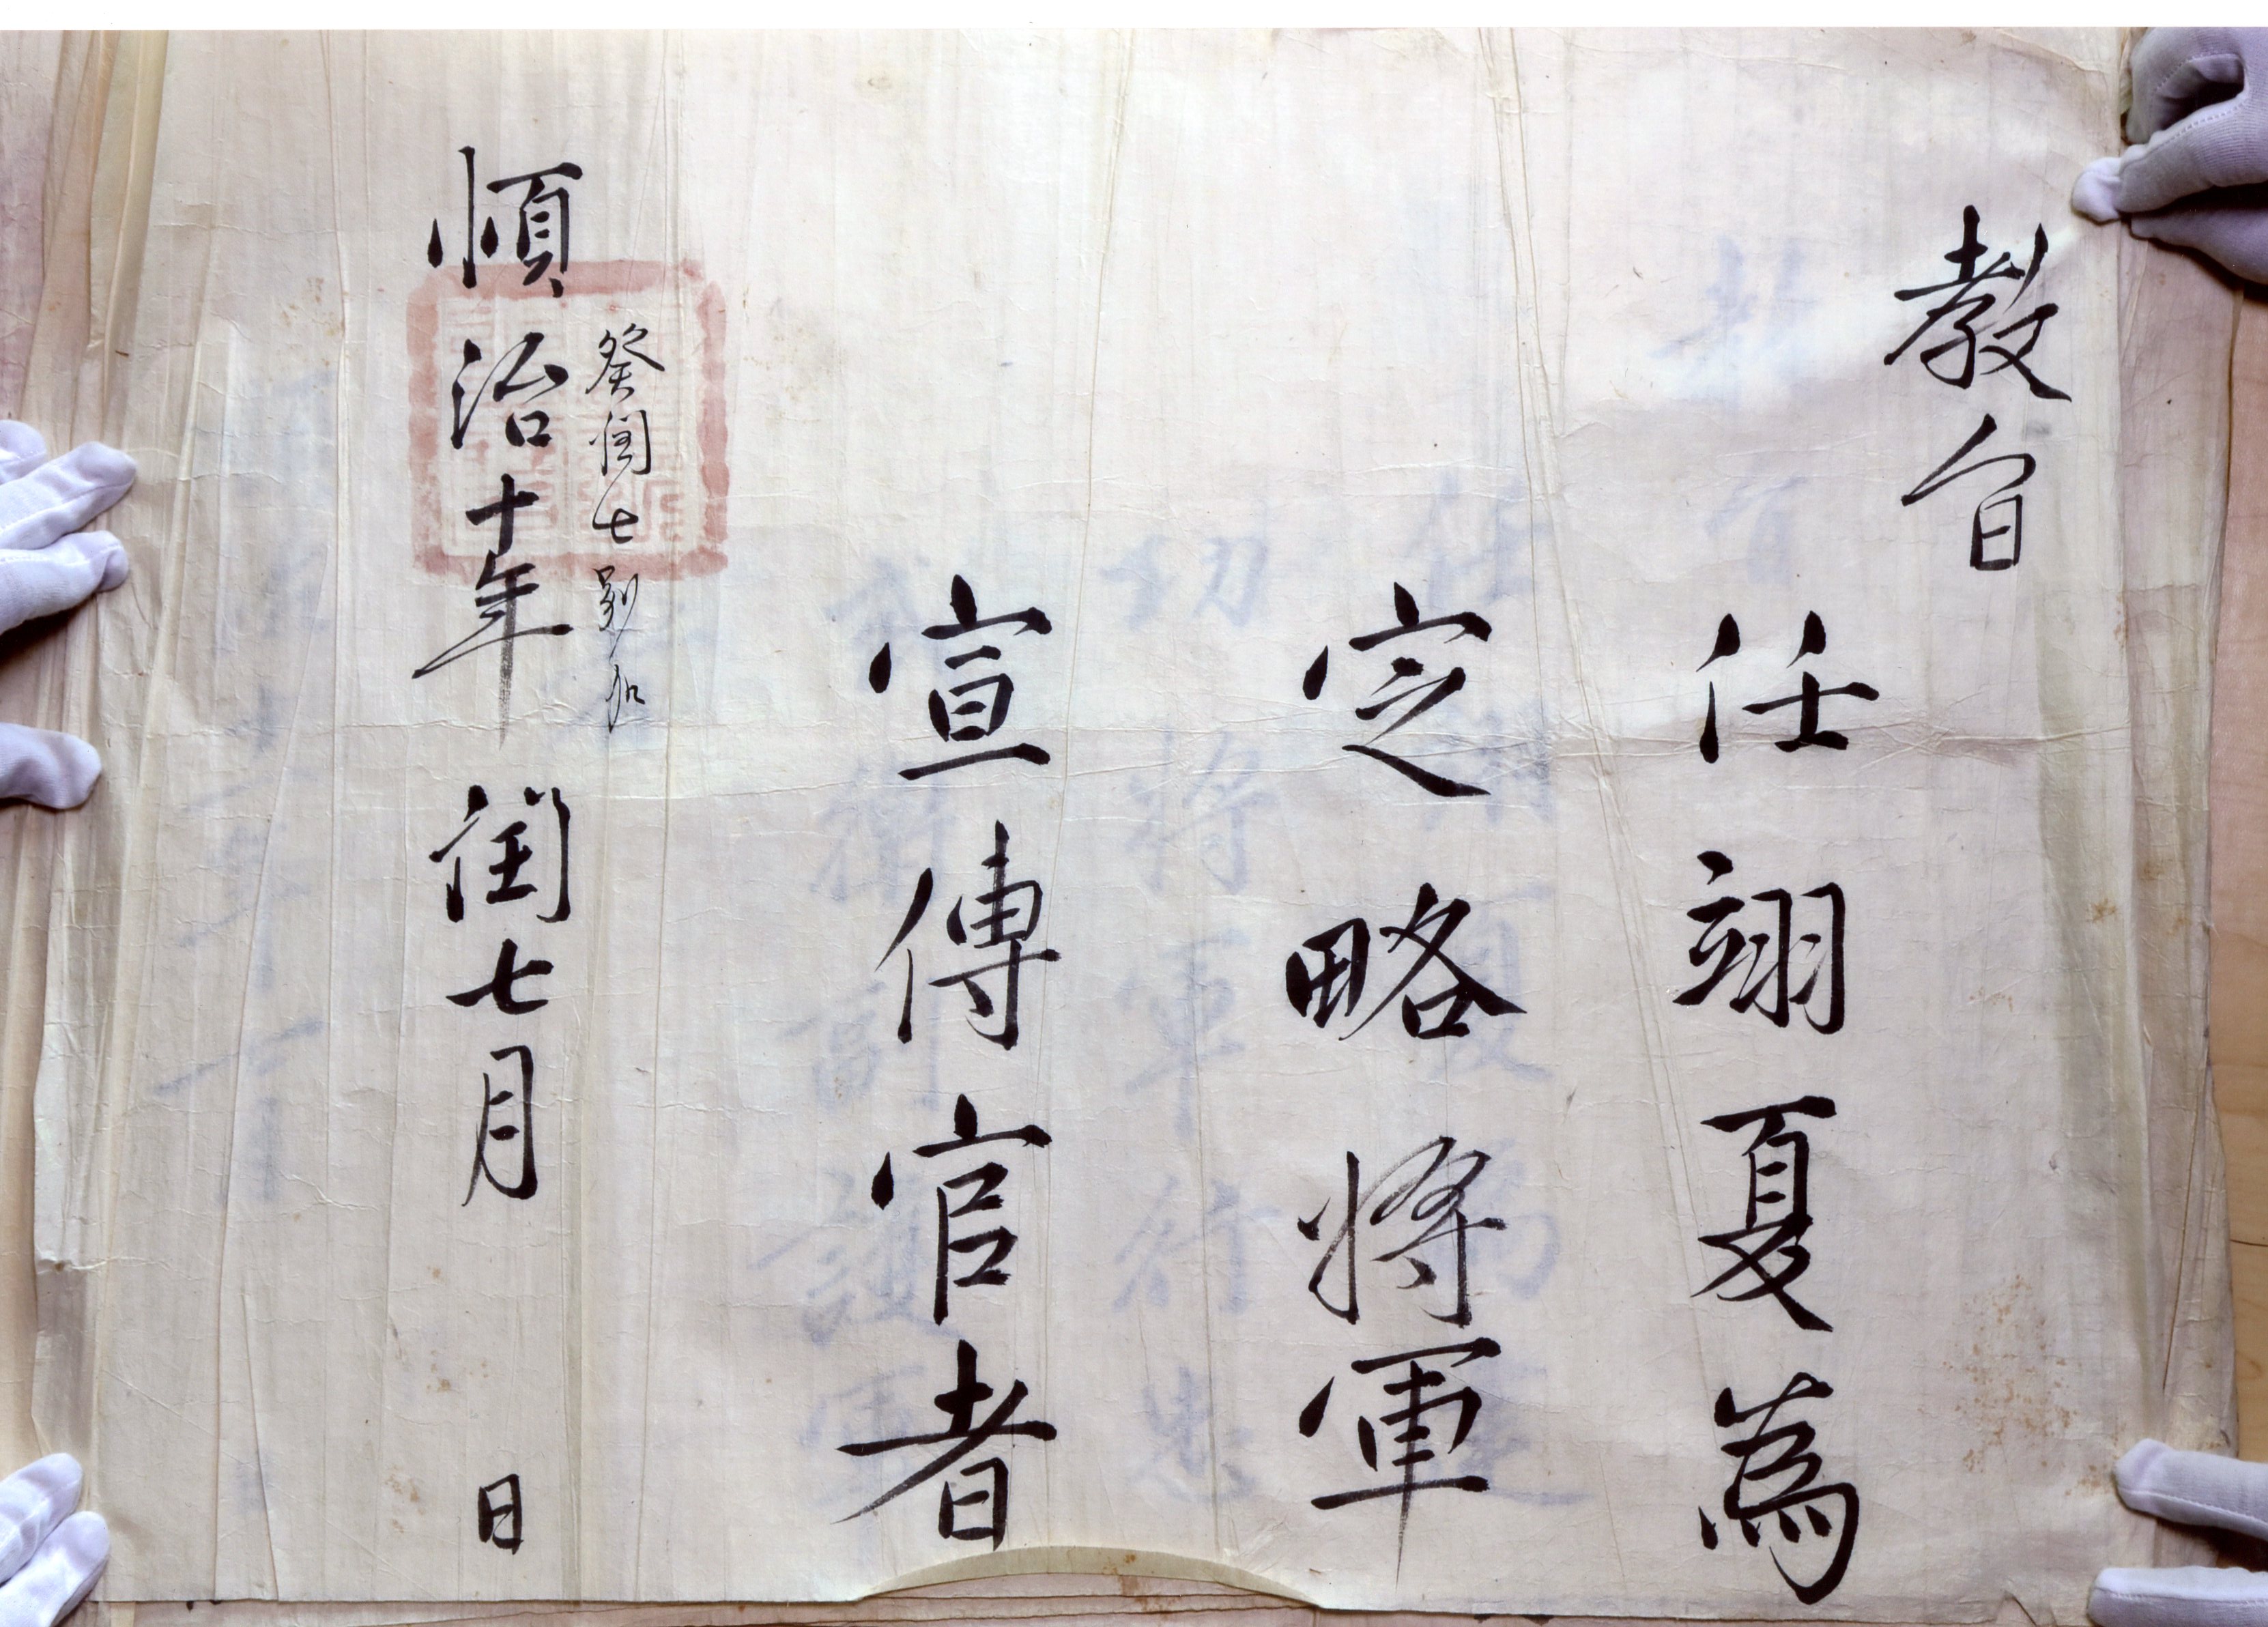 教旨
任翊夏為
定略將軍
宣傳官者
順治十年閏七月 日
癸閏七別加